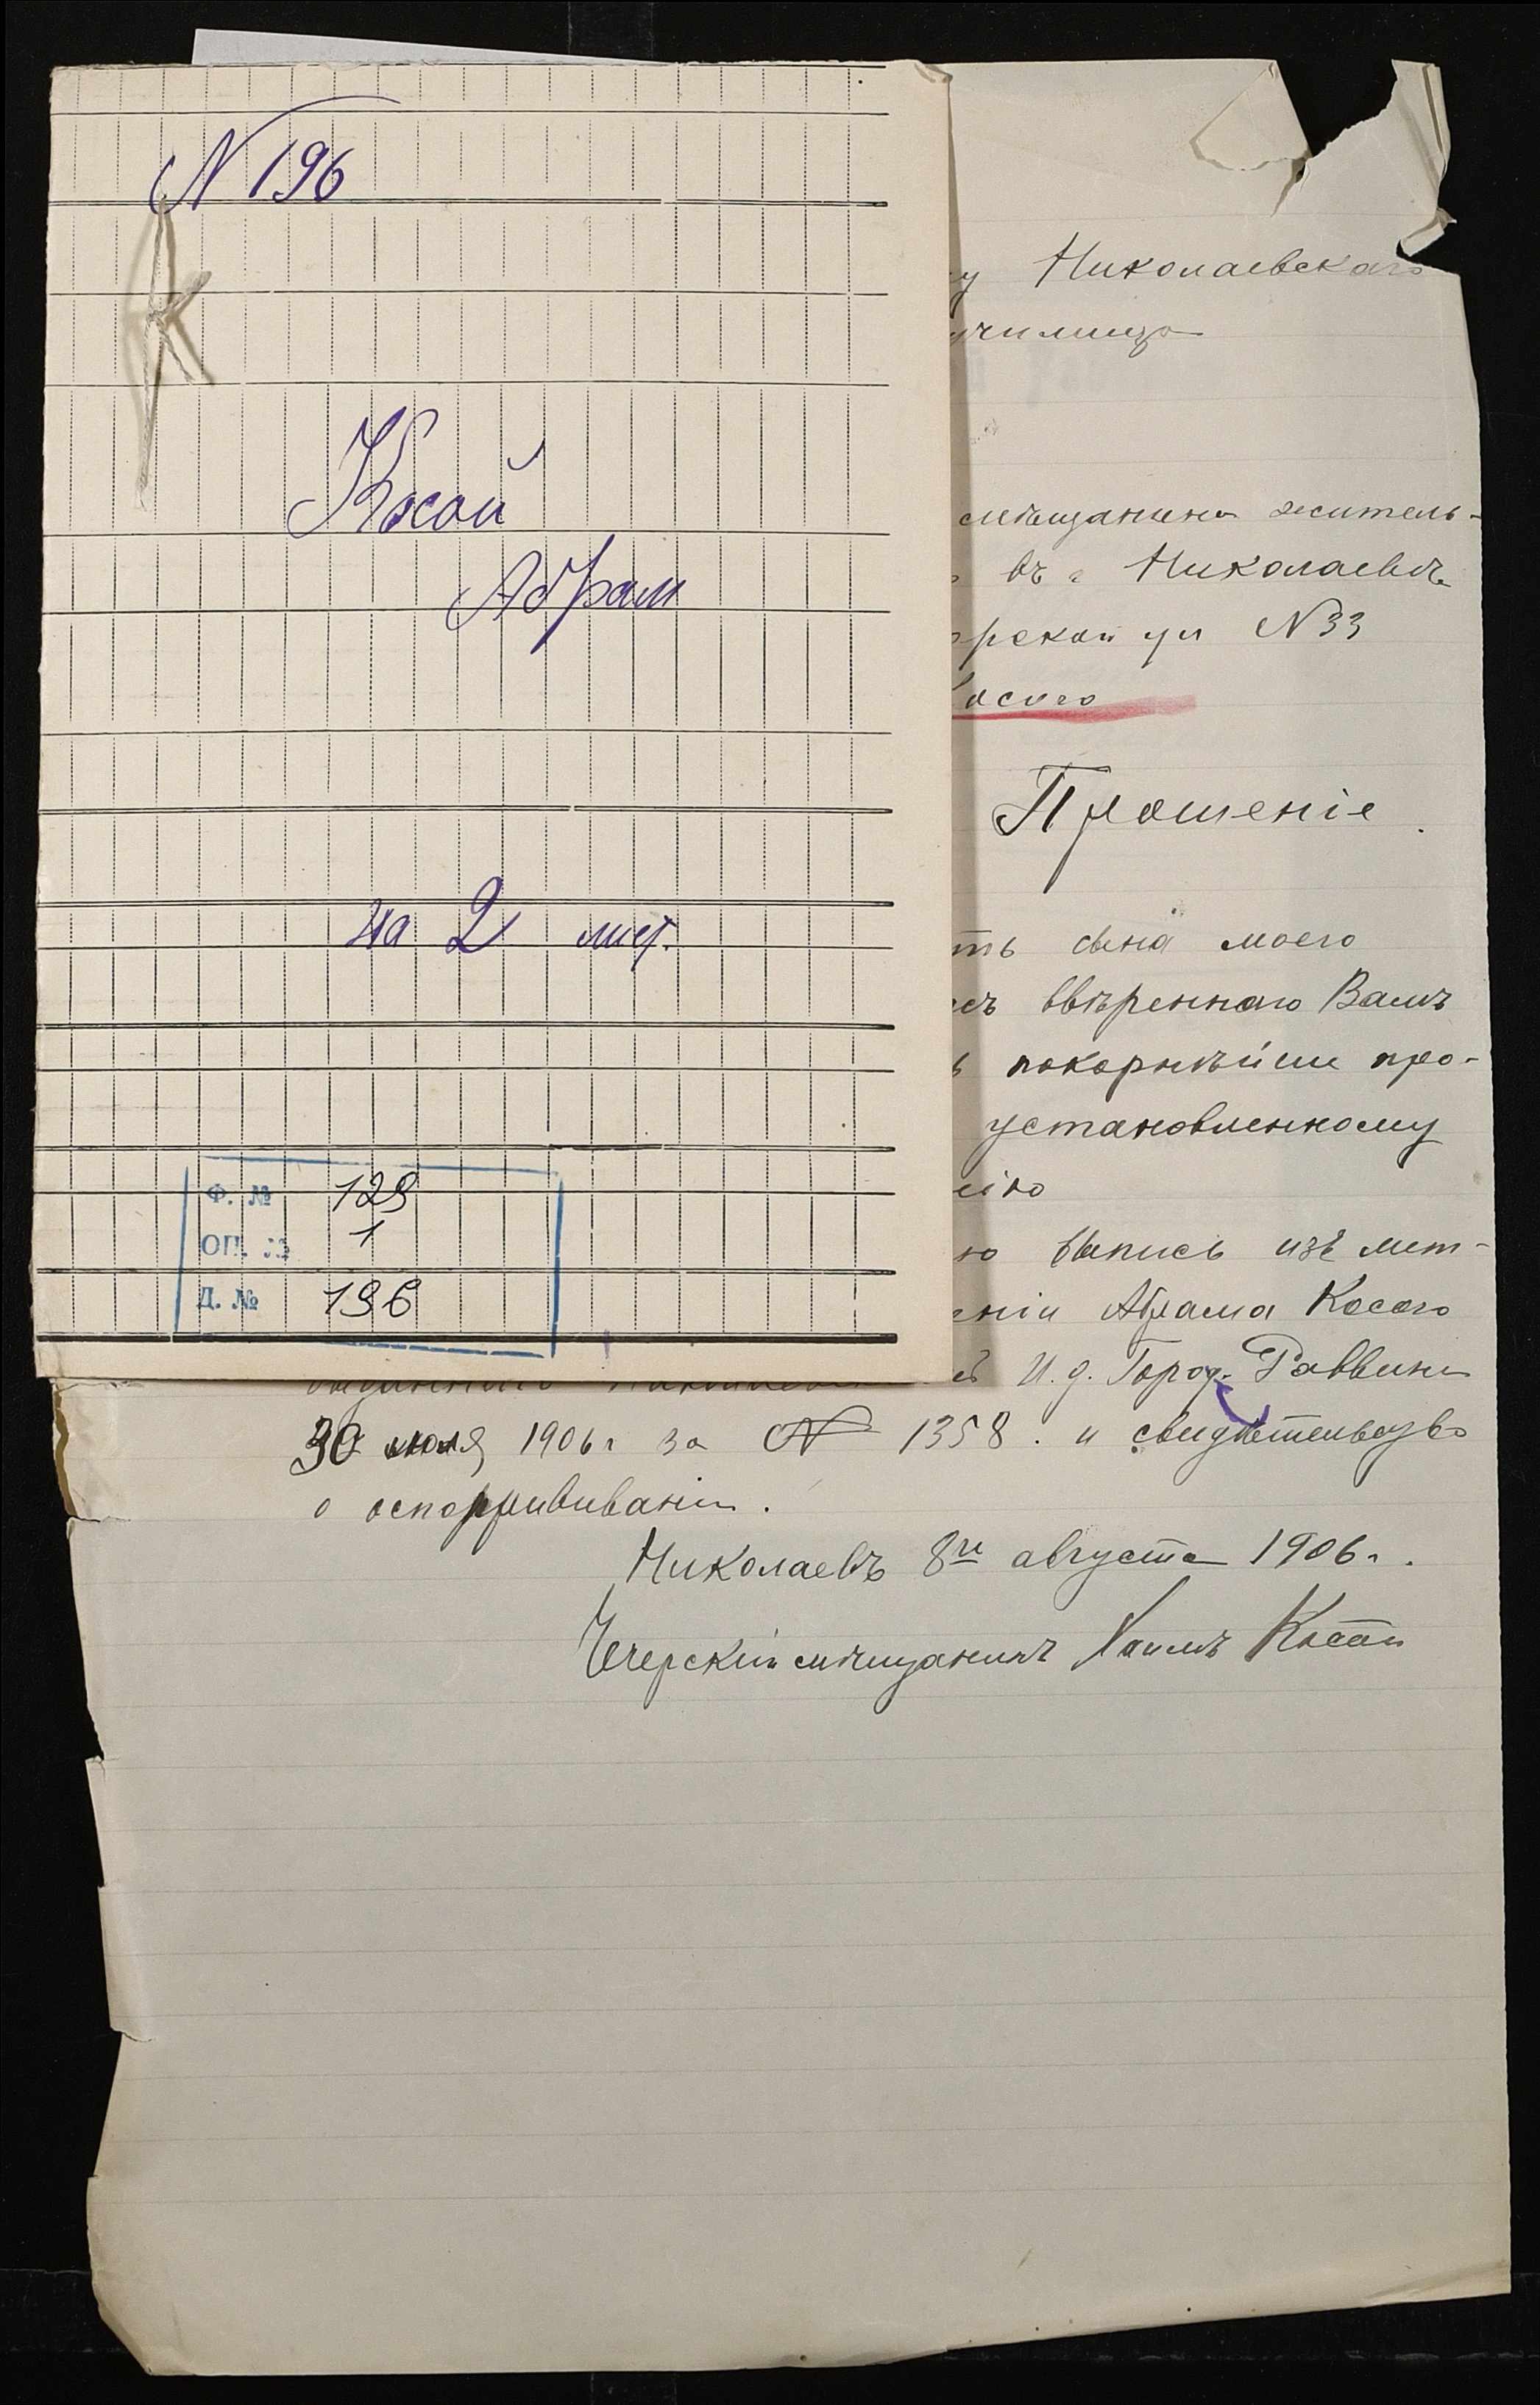 N 196
Косой
Абрам
на 2 лист.
Ф. № 129
ОП. № 1
Д. № 196
у Николаевскаго
училища
мѣщанина житель-
въ г Николаевѣ
рской ул N 33
Косого
Прошеніе.
ть сына моего
ввѣреннаго Вамъ
покорнѣйше про-
установленному
нію
ю выпись изъ мет-
ніи Абрама Косого
И. д. Город. Раввина
30 июля 1906 г за N 1358. и свидѣтельство
о оспопрививаніи.
Николаевъ 8го августа 1906 г.
мѣщанинъ Хаимъ Косой